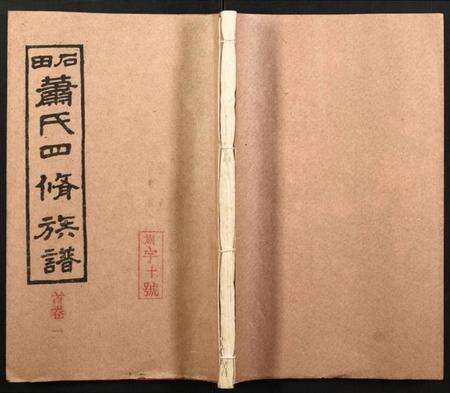 石田
蕭氏四脩族譜
首卷一
字十號